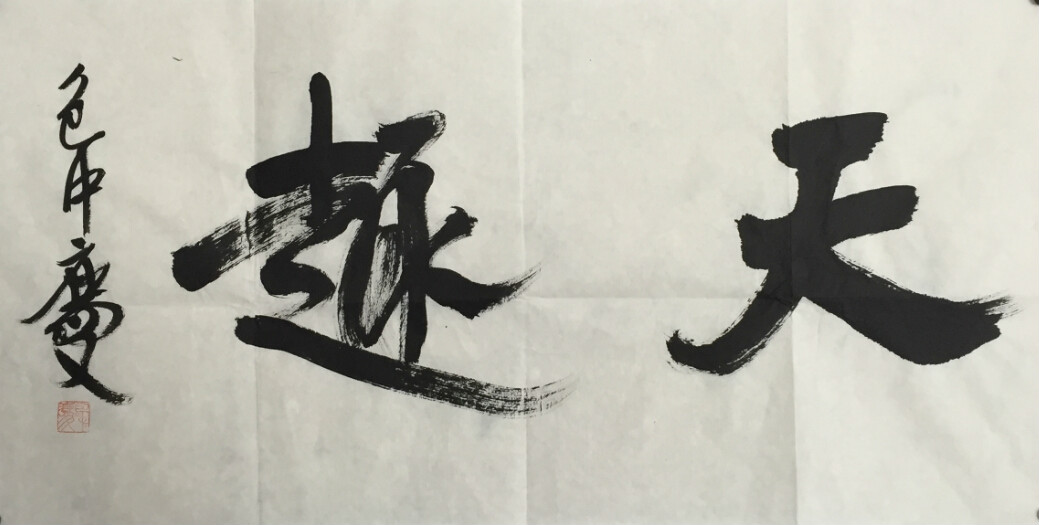 天趣
包中慶